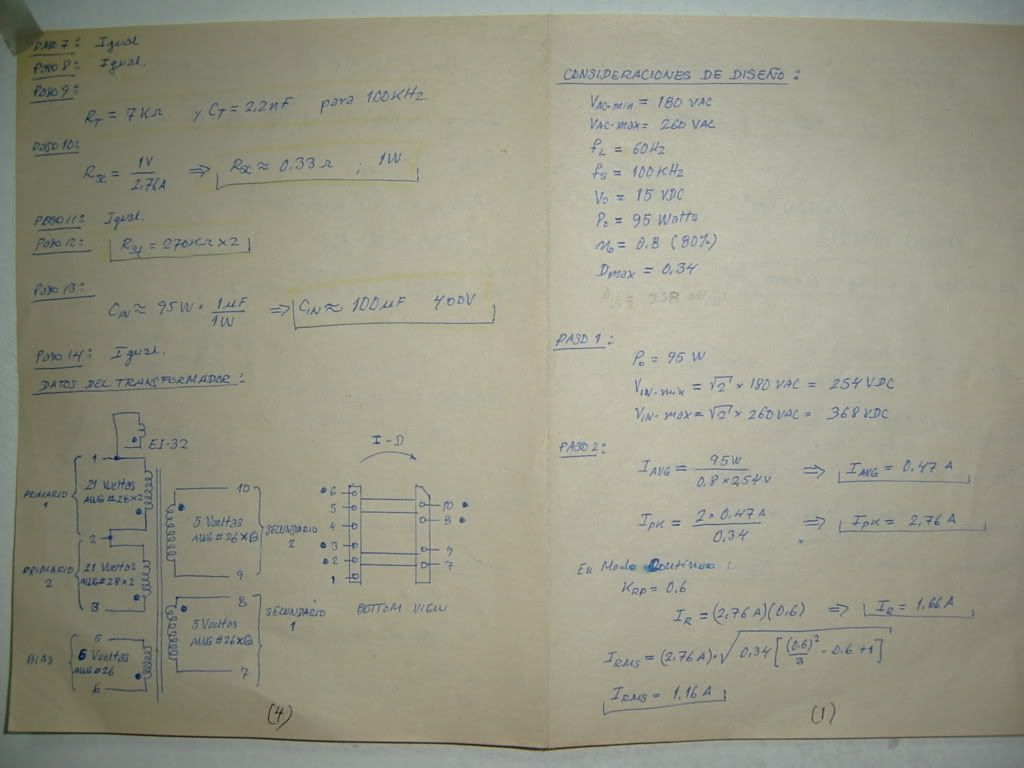 PASO 7: Igual
PASO 8: Igual.
PASO 9:
RT = 7KΩ y CT = 2,2nF para 100KHz.
PASO 10:
RSC = 1V / 2,76A ⇒ RSC ≈ 0.33Ω ; 1W
PASO 11: Igual.
PASO 12: = 270KΩ x 2
PASO 13:
CIN ≈ 95W * 1μF / 1W ⇒ CIN ≈ 100μF 400V
PASO 14: Igual.
DATOS DEL TRANSFORMADOR:
EI-32
PRIMARIO 1
1
21 Vueltas
AWG #28x2
2
PRIMARIO 2
21 Vueltas
AWG #28x2
3
BIAS
5
6 Vueltas
AWG #26
6
10
5 Vueltas
AWG #26x
9
SECUNDARIO 2
8
5 Vueltas
AWG #26x
7
SECUNDARIO 1
I-D
6
5
4
3
2
1
10
8
9
7
BOTTOM VIEW
(4)
CONSIDERACIONES DE DISEÑO:
VAC-min = 180 VAC
VAC-max = 260 VAC
fL = 60Hz
fS = 100KHz
VO = 15 VDC
Po = 95 Watts
no = 0.8 (80%)
Dmax = 0,34
PASO 1:
Po = 95 W
VIN-min = √2 * 180 VAC = 254 VDC
VIN-max = √2 * 260 VAC = 368 VDC
PASO 2:
IAVG = 95W / 0.8*254V ⇒ IAVG = 0.47 A
IPK = 2*0.47A / 0.34 ⇒ IPK = 2,76 A
En Modo Continuo:
KRP = 0.6
IR = (2,76 A)(0.6) ⇒ IR = 1,66 A
IRMS = (2,76 A)*√0,34[(0.6)²/3 - 0.6 + 1]
IRMS = 1,16 A
(1)